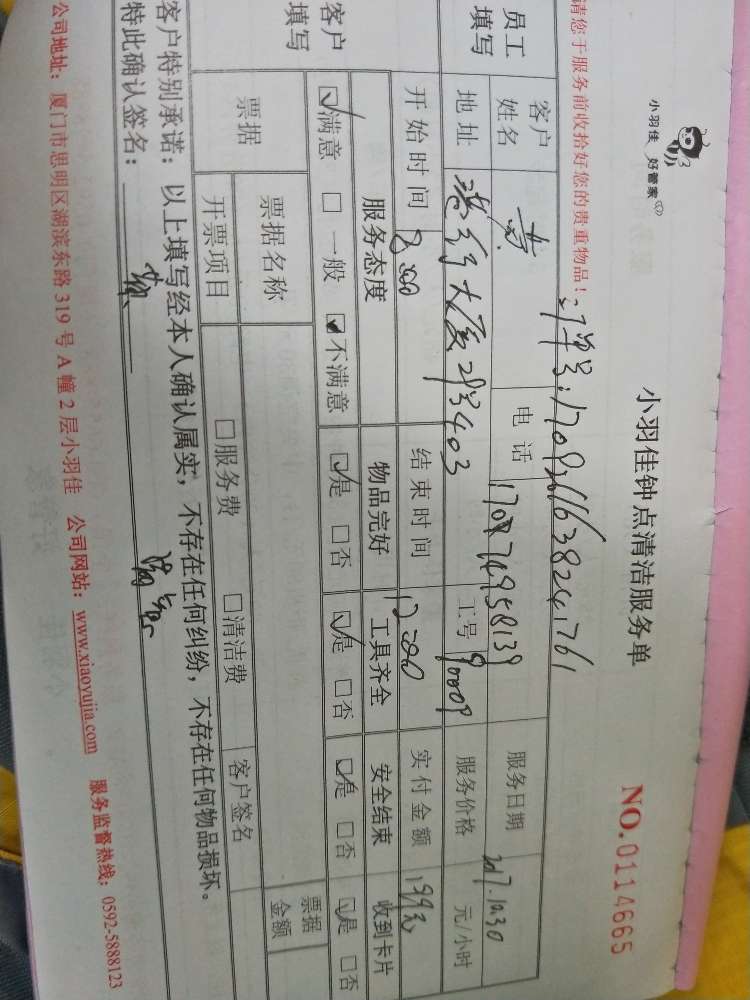 小羽佳 好管家
小羽佳钟点清洁服务单
NO.0114665
请您于服务前收拾好您的贵重物品！
员工填写
客户姓名 电话 服务日期 2017.10.30
地址 2号403 工号 9000P 服务价格 元/小时
开始时间 8:00 结束时间 12:00 实付金额 199元
客户填写
服务态度 物品完好 工具齐全 安全结束 收到卡片
☑满意 □一般 ☑不满意 ☑是 □否 ☑是 □否 ☑是 □否 ☑是 □否
票据 票据名称 票据金额
开票项目 □服务费 □清洁费 客户签名
客户特别承诺：以上填写经本人确认属实，不存在任何纠纷，不存在任何物品损坏。
特此确认签名：
公司地址：厦门市思明区湖滨东路319号A幢2层小羽佳 公司网站：www.xiaoyujia.com 服务监督热线：0592-5888123